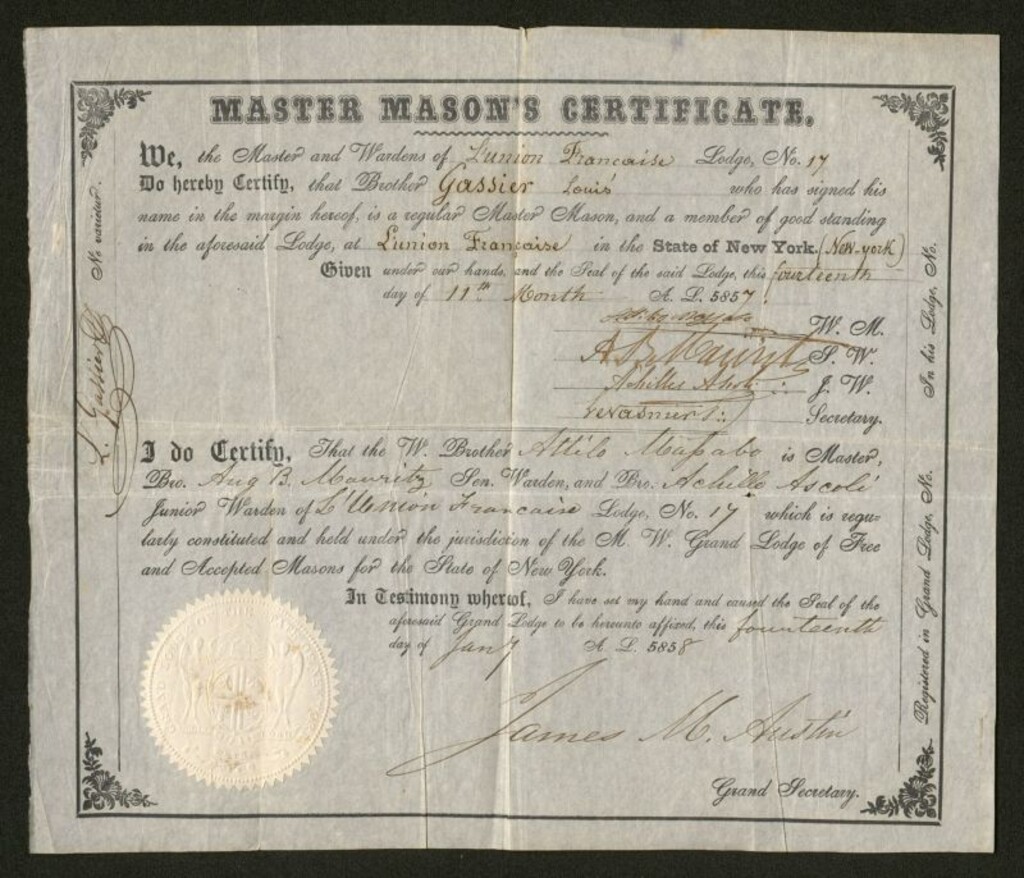 MASTER MASON'S CERTIFICATE.
We, the Master and Wardens of L'union Francaise Lodge, No. 17
Do hereby Certify, that Brother Gassier Louis who has signed his
name in the margin hereof, is a regular Master Mason, and a member of good standing
in the aforesaid Lodge, at L'union Francaise in the State of New York. (New-york)
Given under our hands, and the Seal of the said Lodge, this fourteenth
day of 11th Month A. L. 5857.
W. M.
A B Mauritz S. W.
Achilles Ascoli J. W.
Secretary.
I do Certify, That the W. Brother Attilo is Master,
Bro. Aug B. Mawritz Sen. Warden, and Bro. Achille Ascoli
Junior Warden of L'Union Francaise Lodge, No. 17 which is regu-
larly constituted and held under the jurisdicion of the M. W. Grand Lodge of Free
and Accepted Masons for the State of New York.
In Testimony whereof, I have set my hand and caused the Seal of the
aforesaid Grand Lodge to be hereunto affixed, this fourteenth
day of Jany A. L. 5858
James M. Austin
Grand Secretary.
Ne varietur.
L. Gassier
Registered in Grand Lodge, No. In his Lodge, No.